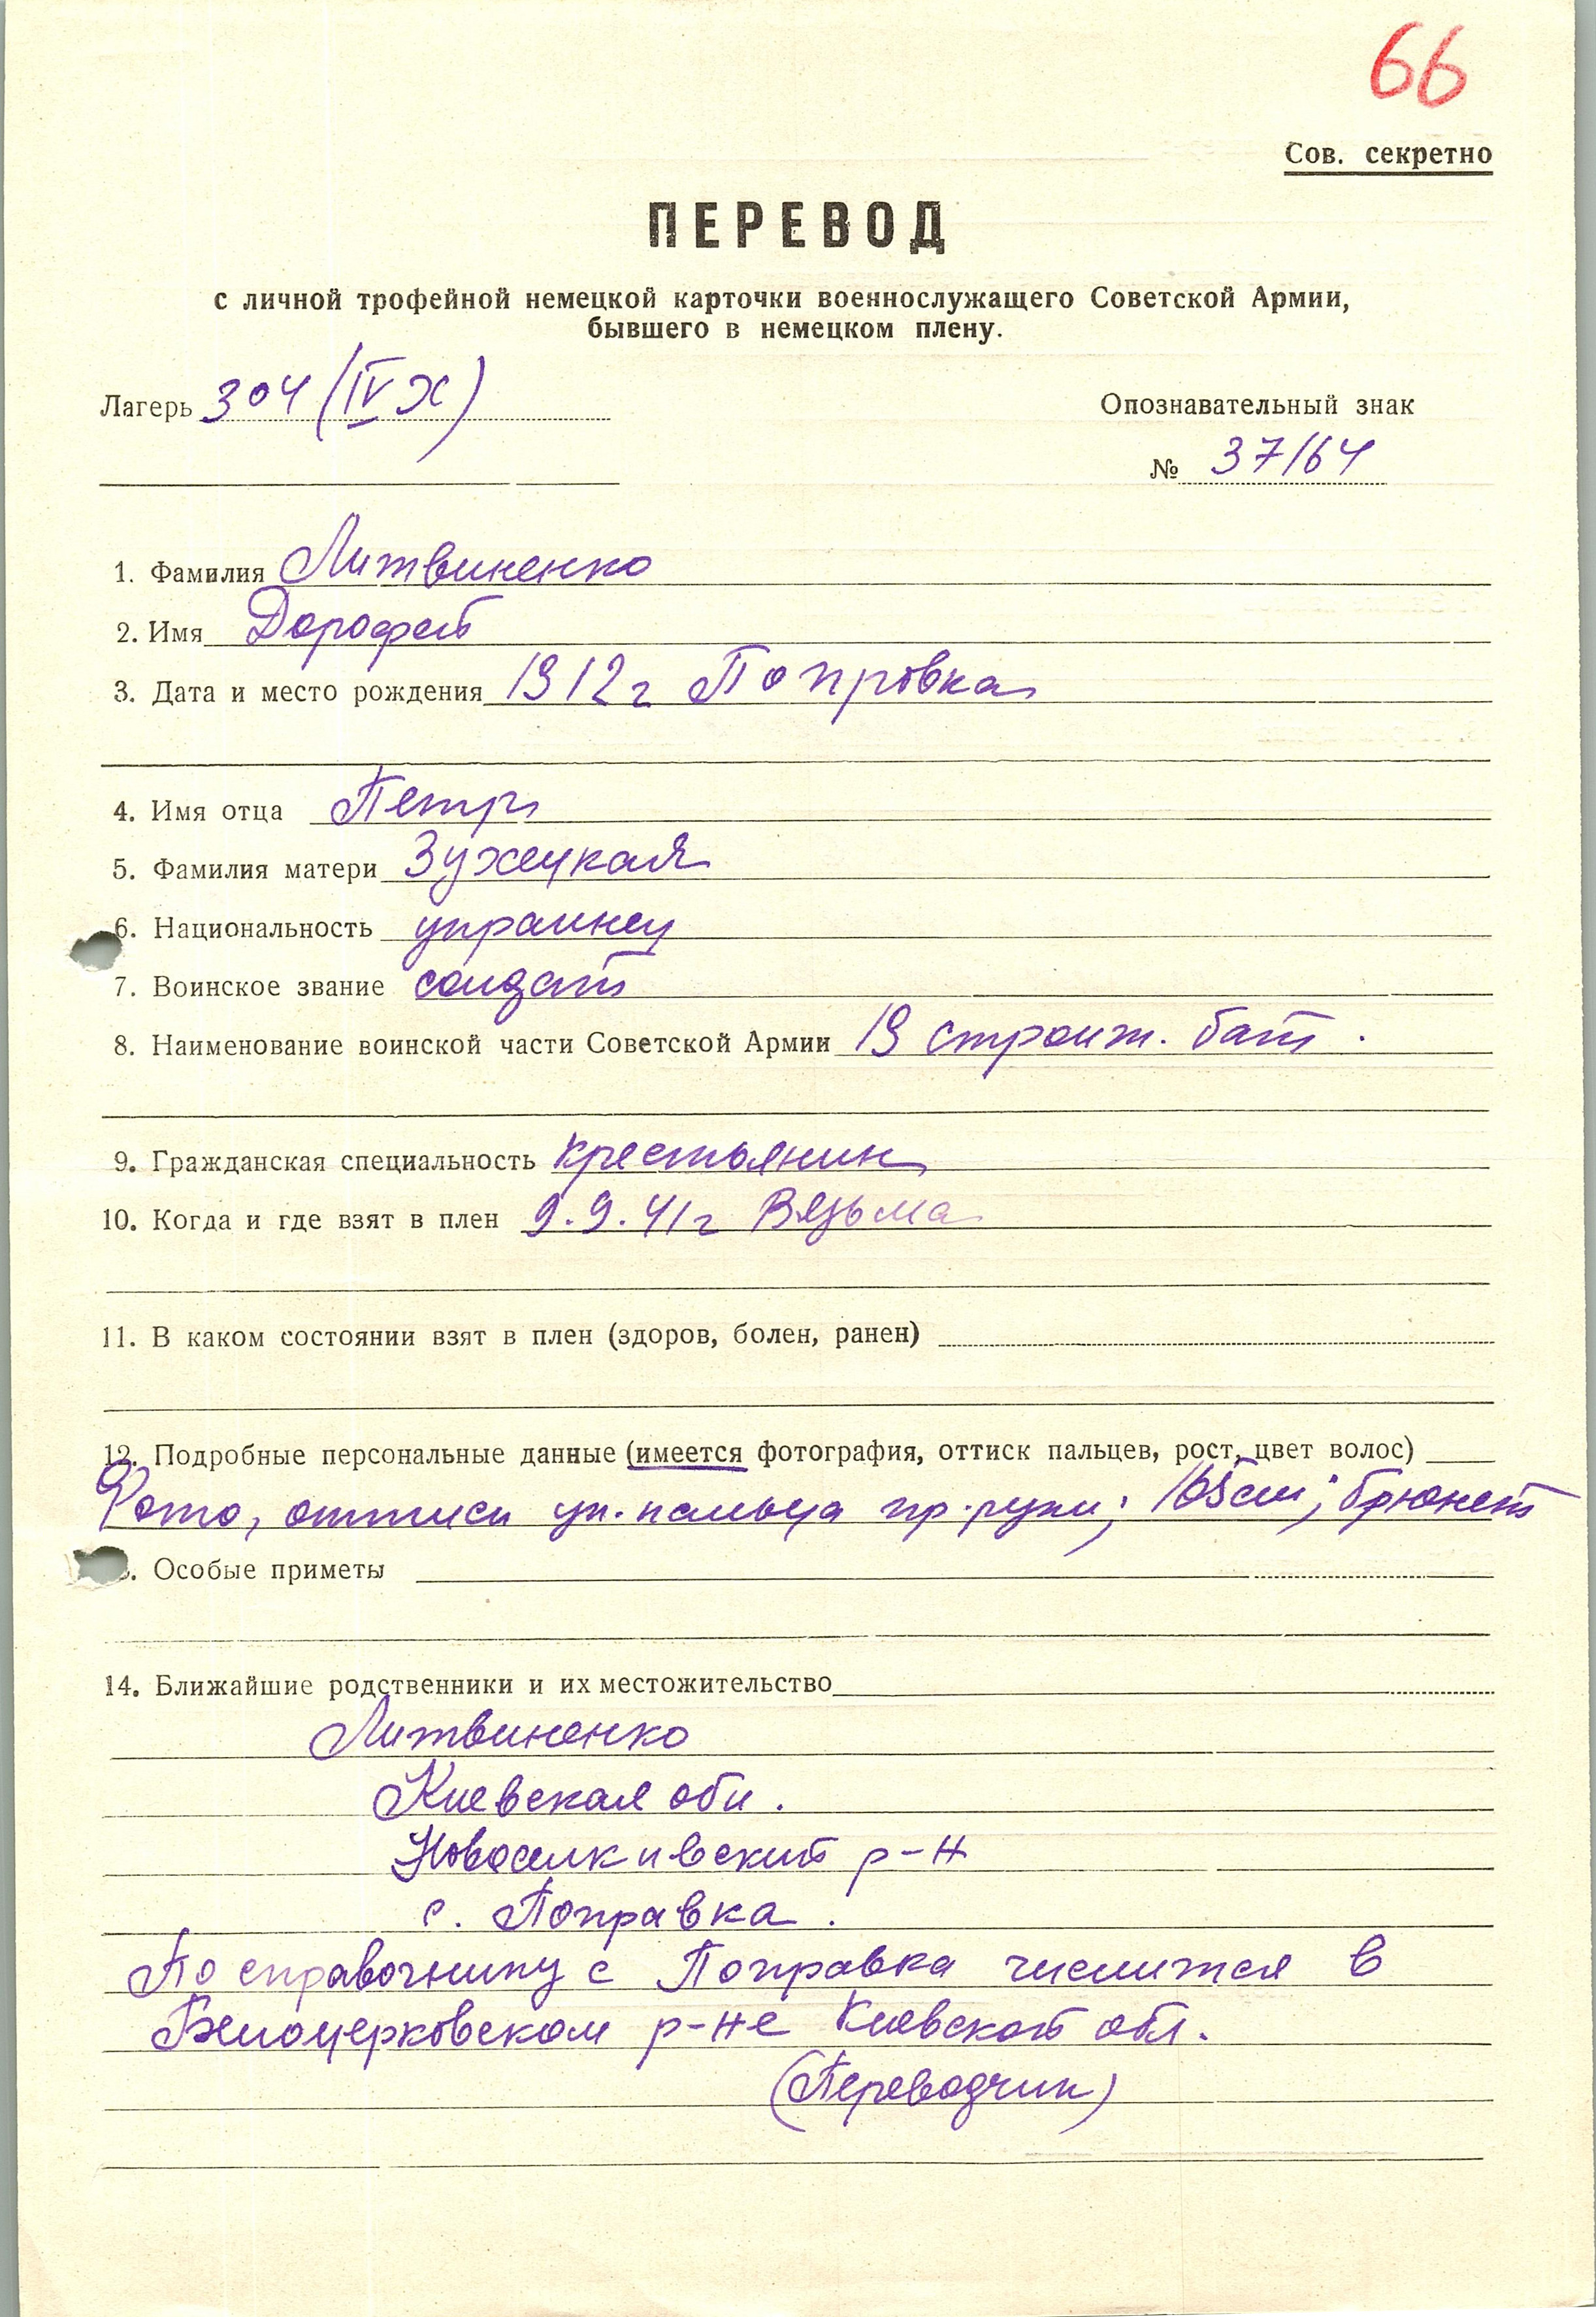 66
Сов. секретно
ПЕРЕВОД
с личной трофейной немецкой карточки военнослужащего Советской Армии,
бывшего в немецком плену.
Лагерь 304 (IV Х)
Опознавательный знак
№ 37164
1. Фамилия Литвиненко
2. Имя Дорофей
3. Дата и место рождения 1912 г Попровка
4. Имя отца Петр
5. Фамилия матери Зухецкая
6. Национальность украинец
7. Воинское звание солдат
8. Наименование воинской части Советской Армии 19 строит. бат.
9. Гражданская специальность крестьянин
10. Когда и где взят в плен 9.9.41 г Вязьма
11. В каком состоянии взят в плен (здоров, болен, ранен)
12. Подробные персональные данные (имеется фотография, оттиск пальцев, рост, цвет волос)
Фото, оттиск ук. пальца пр. руки; 165 см; брюнет
. Особые приметы
14. Ближайшие родственники и их местожительство
Литвиненко
Киевская обл.
Новоселкивский р-н
с. Поправка.
По справочнику с Поправка числится в
Белоцерковском р-не Киевской обл.
(Переводчик)